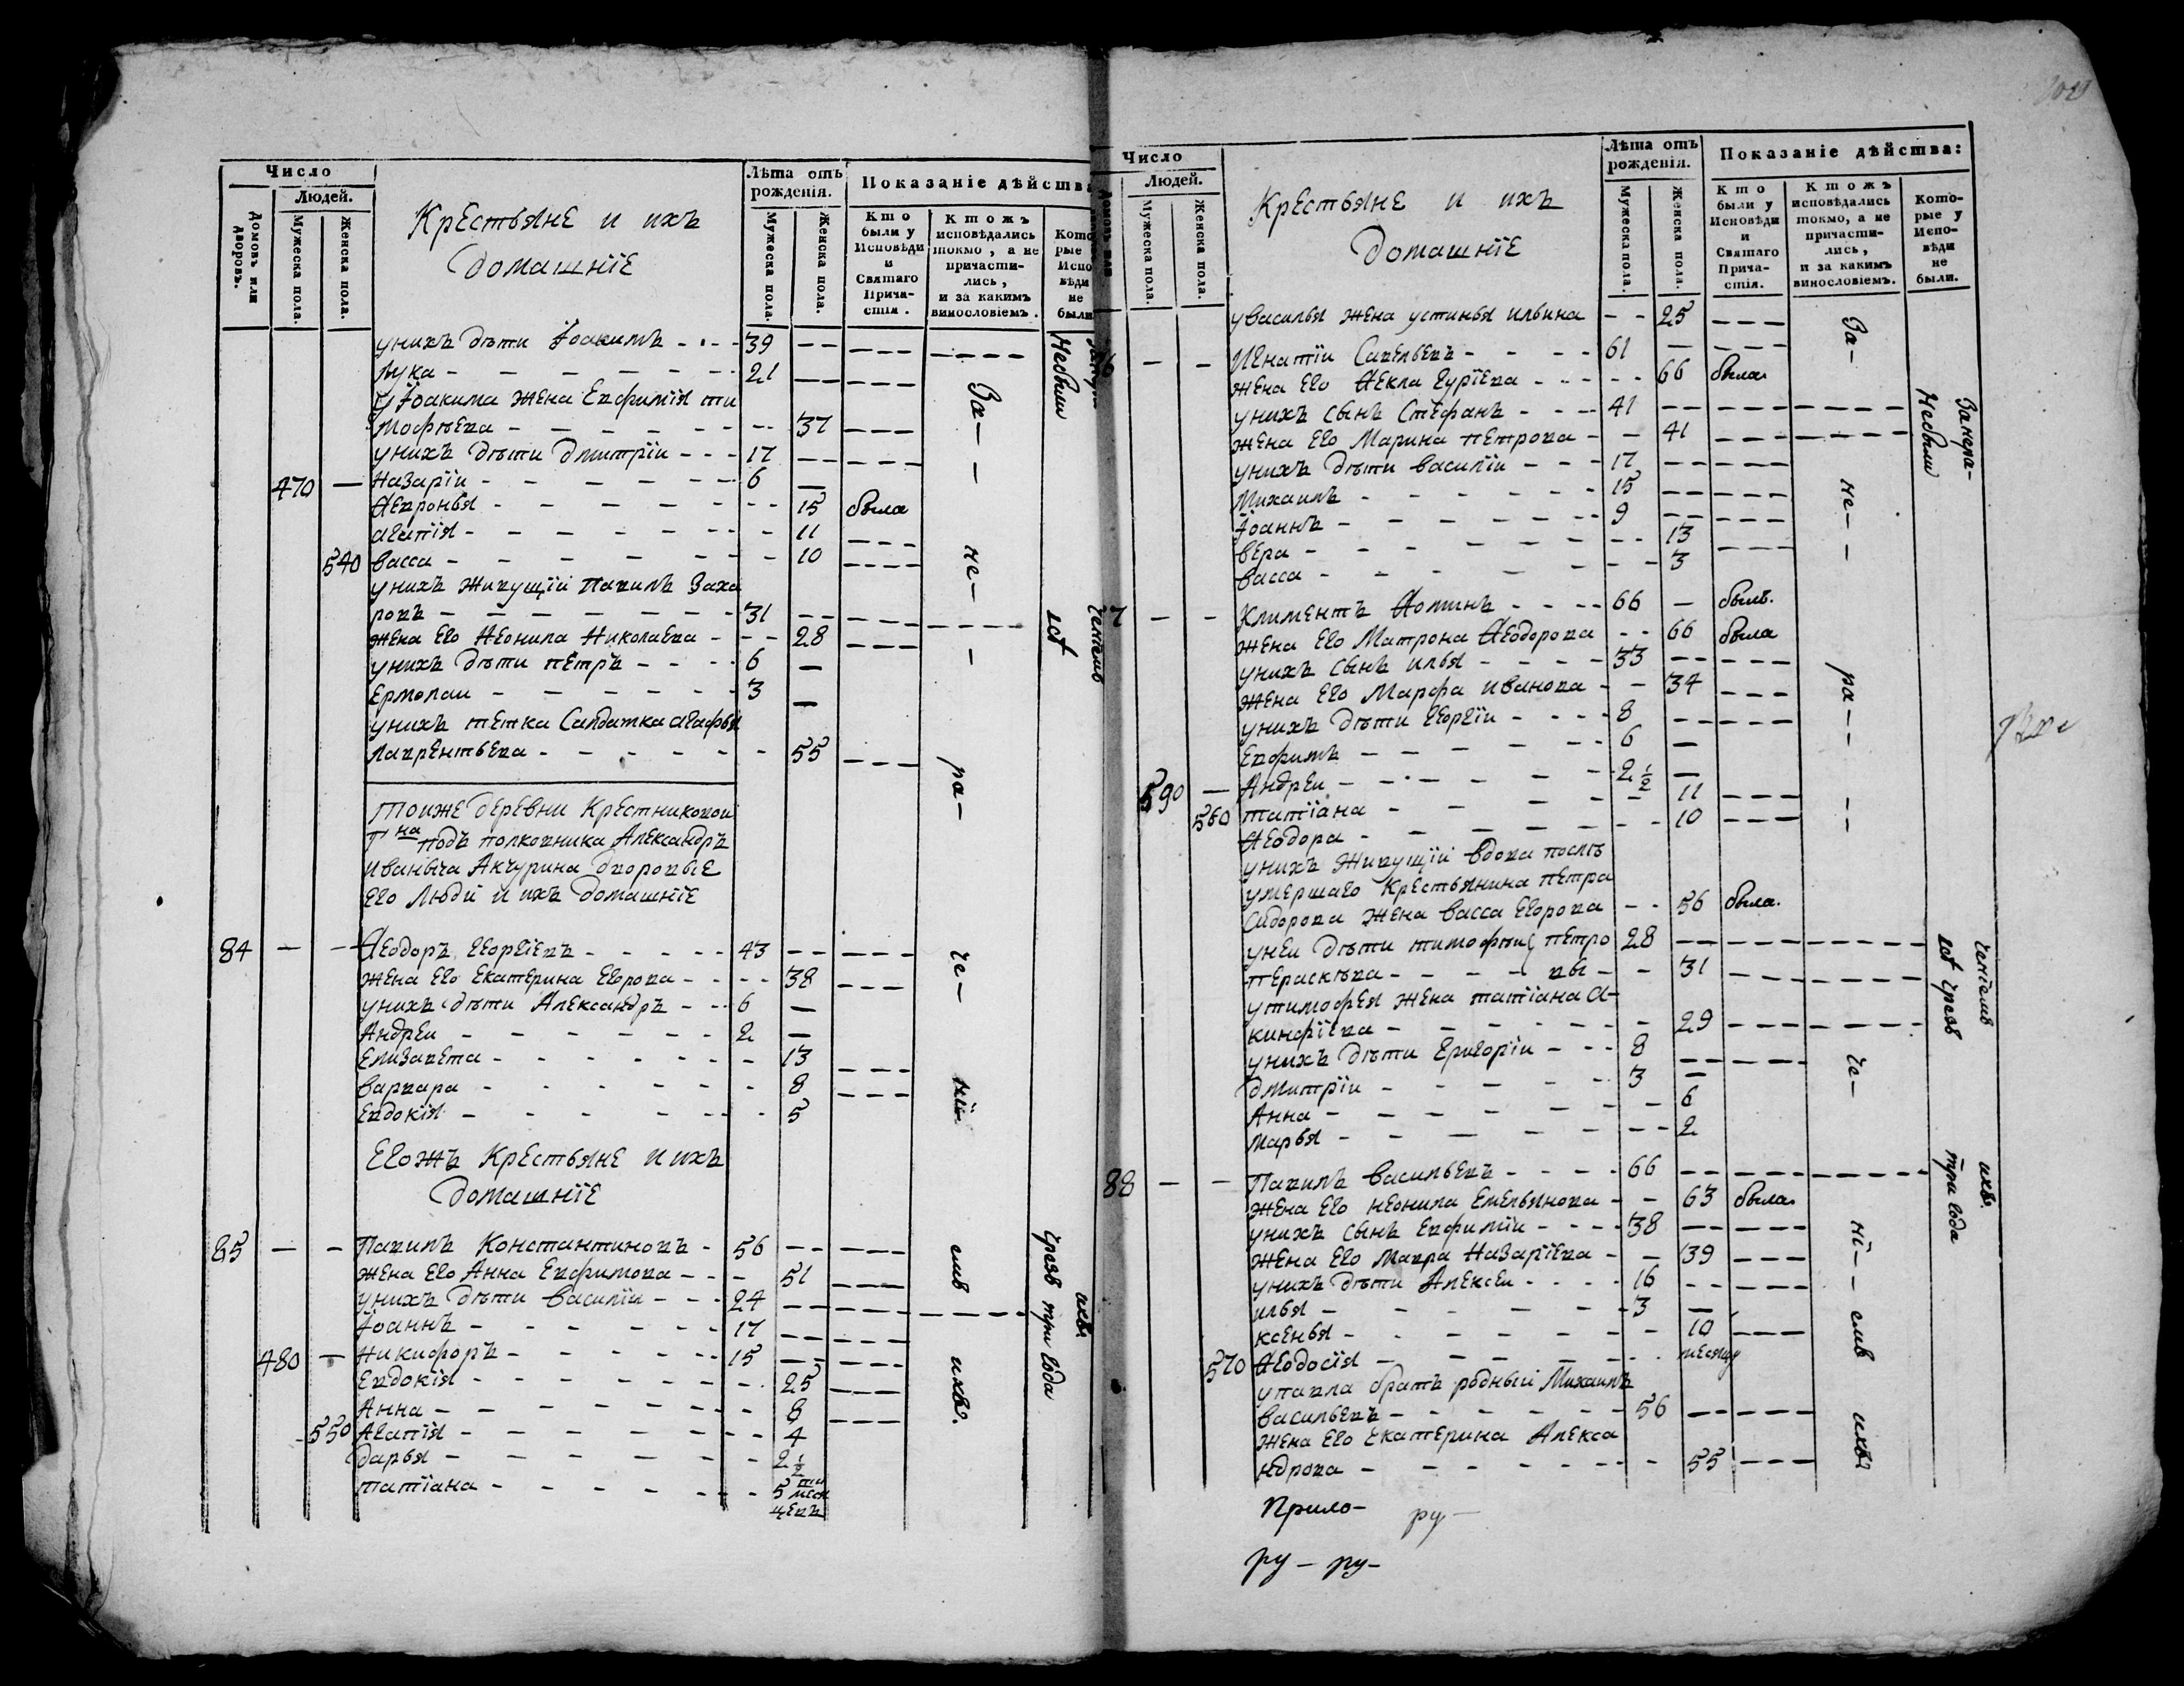 Число
Людей.
Домовъ или дворовъ.
Мужеска пола.
Женска пола.
Крестьяне и ихъ
домашніе
Лѣта отъ
рожденія.
Мужеска пола.
Женска пола.
Показаніе дѣйства
Кто были у Исповѣди и Святаго Причастія.
Ктожъ исповѣдались токмо, а не причастились, и за какимъ винословіемъ.
Которые у Исповѣди не были
унихъ дѣти Іоакимъ 39
Лука 21
у Іоакима жена Евфимія ти
мофѣева 37
унихъ дѣти дмитріи 17
470 — Назаріи 6
Ѳевронья 15 была
агапія 11
540 васса 10
унихъ живущіи Павилъ Заха
ровъ 31
жена его Неонила Николаева 28
унихъ дѣти петръ 6
Ермолаи 3
унихъ тетка Салдатка агафья
лаврентьева 55
Тоиже деревни Крестниковои
Гна подъ полковника Александръ
Иваныча Акчурина дворовые
Его Люди и ихъ домашніе
84 — — Ѳеодоръ Георгіевъ 43
жена его Екатерина Егорова 38
унихъ дѣти Александръ 6
Андреи 2
Елизавета 13
варвара 8
Евдокія 5
Егожъ Крестьяне и ихъ
домашніе
85 — — Павилъ Константиновъ 56
жена его Анна Евфимова 51
унихъ дѣти василіи 24
Іоаннъ 17
480 — Никифоръ 15
Евдокія 25
Анна 8
550 Агапія 4
дарья 2 1/2
татіана 5ти меся
цевъ
За— не— ра— че— ніи емъ ихъ.
Небыли
чрезъ три года
Число
Людей.
Мужеска пола.
Женска пола.
Крестьяне и ихъ
домашніе
Лѣта отъ
рожденія.
Мужеска пола.
Женска пола.
Показаніе дѣйства:
Кто были у Исповѣди и Святаго Причастія.
Ктожъ исповѣдались токмо, а не причастились, и за какимъ винословіемъ.
Которые у Исповѣди не были.
увасилья жена устинья ильина 25
6 — — Игнатіи Савельевъ 61
жена его Ѳекла гуріева 66 была
унихъ сынъ Стефанъ 41
жена его Марина петрова 41
унихъ дѣти василіи 17
Михаилъ 15
Іоаннъ 9
вера 13
васса 3
7 — — Климентъ Ѳоминъ 66 былъ.
жена его Матрона Ѳеодорова 66 была
унихъ сынъ илья 33
жена его Марфа иванова 34
унихъ дѣти георгіи 8
Евфимъ 6
590 — Андреи 2 1/2
560 татіана 11
Ѳеодора 10
унихъ живущіи вдова послѣ
умершаго крестьянина петра
Сидорова жена васса Егорова 56 была.
унеи дѣти тимофѣи петро 28
пераскѣва вы 31
утимофея жена татіана а-
кинфіева 29
унихъ дѣти григоріи 8
дмитріи 3
Анна 6
марья 2
88 — — Павилъ васильевъ 66
жена его неонила Емельянова 63 была
унихъ сынъ Евфиміи 38
жена его Мавра Назаріева 39
унихъ дѣти Алексеи 16
илья 3
ксенья 10
570 Ѳеодосія месяцу
упавла братъ родныи Михаилъ
васильевъ 56
жена его екатерина Алекса
ндрова 55
За— не— ра— че— ні— емъ ихъ
Небыли
чрезъ
три года
Занера-
ченіемъ
ихъ.
Прило- ру-
ру- ру-